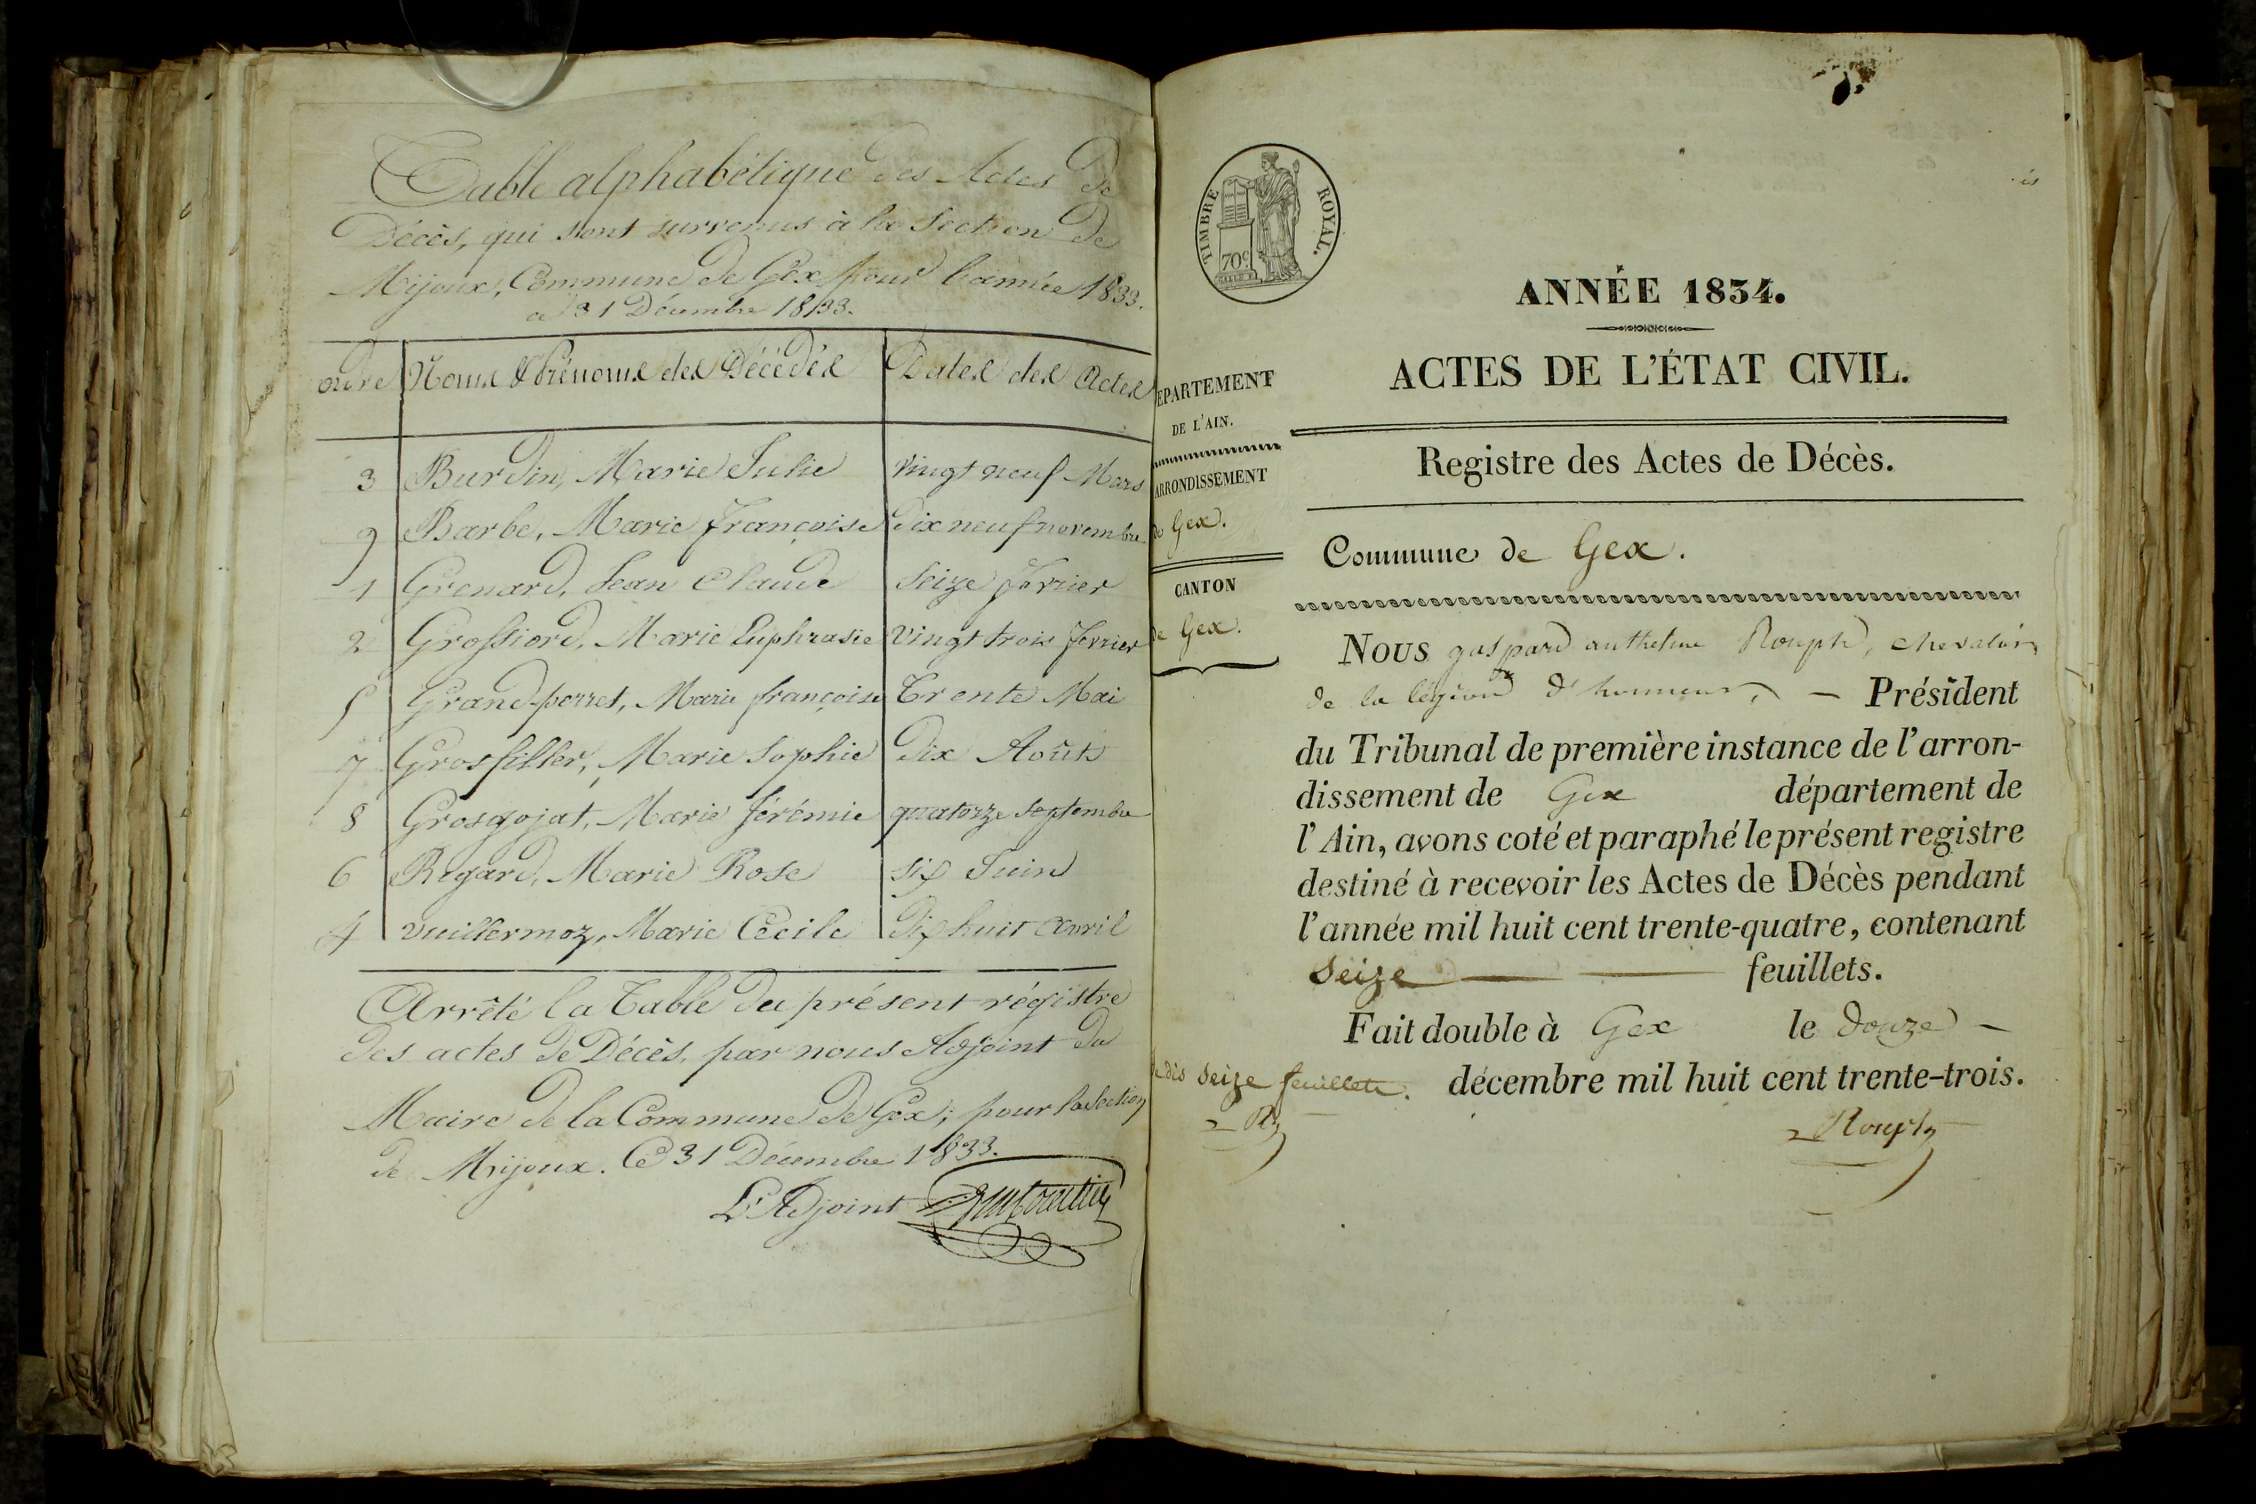 Table alphabétique des Actes de
Décès, qui sont survenus à la Section de
Mijoux, Commune de Gex pour l'année 1833.
a 31 Décembre 1833.
ordre Noms & Prénoms des Décédés Dates des Actes
3 Burdin, Marie Julie vingt neuf Mars
9 Barbe, Marie Françoise dix neuf novembre
1 Grenard, Jean Claude Seize fevrier
2 Grossiord, Marie Euphrasie vingt trois fevrier
5 Grand-perret, Marie françoise Trente Mai
7 Grosfiller, Marie Sophie dix Août
8 Grosgojat, Marie Jérémie quatorze septembre
6 Regard, Marie Rose six Juin
4 Vuillermoz, Marie Cécile dix huit avril
Arrêté la Table du présent régistre
des actes de Décès, par nous Adjoint du
Maire de la Commune de Gex, pour la Section
de Mijoux. Ce 31 Décembre 1833.
L'Adjoint
TIMBRE ROYAL.
70c
ANNÉE 1834.
ACTES DE L'ÉTAT CIVIL.
EPARTEMENT
DE L'AIN.
ARRONDISSEMENT
de Gex.
CANTON
de Gex.
Registre des Actes de Décès.
Commune de Gex.
Nous gaspard anthelme Rouph, chevalier
de la légion d'honneur, — Président
du Tribunal de première instance de l'arron-
dissement de Gex département de
l'Ain, avons coté et paraphé le présent registre
destiné à recevoir les Actes de Décès pendant
l'année mil huit cent trente-quatre, contenant
Seize — feuillets.
Fait double à Gex le douze —
décembre mil huit cent trente-trois.
je dis seize feuillets.
Rouph